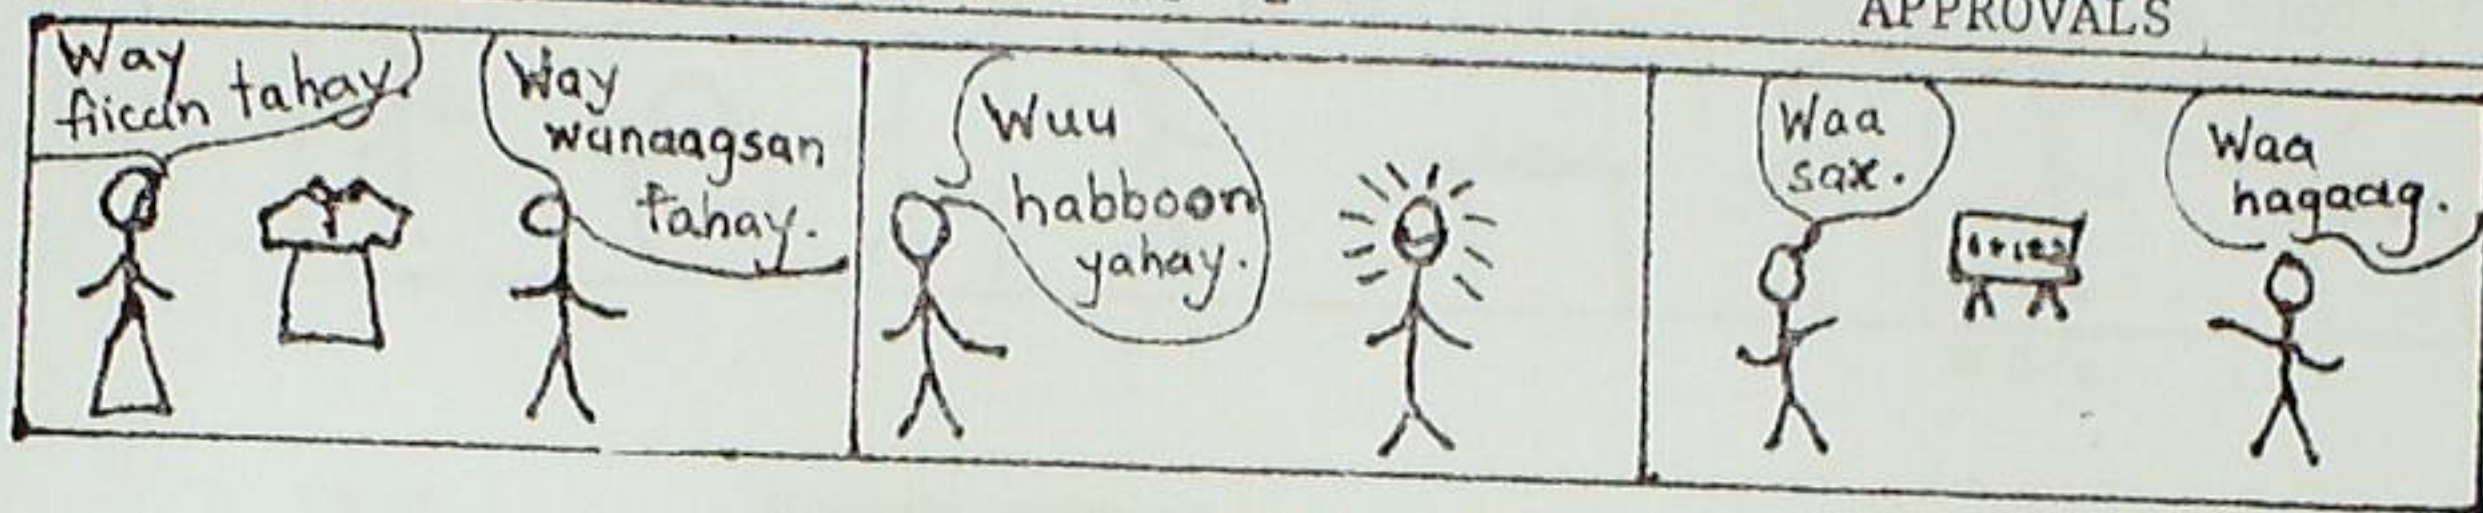 APPROVALS
Way
fiican tahay.
Way
wanaagsan
tahay.
Wuu
habboon
yahay.
Waa
sax.
1+1=2
Waa
hagaag.